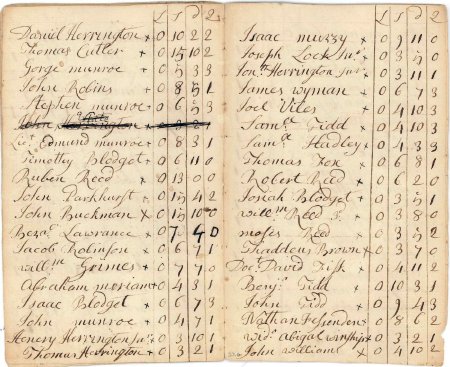 L S d 2
Daniel Herrington x 0 10 2 2
Thomas Cutler x 0 15 10 2
Gorge munroe x 0 5 3 3
John Robins x 0 8 5 1
Stephen munroe x 0 6 5 3
John
Lieᵗ Edmund munroe x 0 8 3 1
Timothy Blodget x 0 6 11 0
Ruben Reed x 0 13 0 0
John Parkhurst x 0 15 4 2
John Buckman x 0 15 10 0
Benaⁿ Lawrance x 0 7 9 0
Jacob Robinson x 0 6 7 1
willᵐ Grimes x 0 7 7 0
Abraham moriam x 0 4 3 1
Isaac Blodget x 0 6 7 3
John munroe x 0 4 7 1
Henery Herrington Juʳ x 0 3 10 1
Thomas Herrington x 0 3 2 1
L S d 2
Isaac muzzy x 0 9 11 0
Joseph Lock Junʳ x 0 3 5 0
Jonᵗʰ Herrington Juʳ x 0 3 11 1
James wyman x 0 6 7 3
Joel Viles x 0 4 10 3
Samˡ Gidd x 0 4 10 3
Samˡ Hadley x 0 4 3 3
Thomas Fox x 0 6 8 1
Robert Reed x 0 6 2 0
Josiah Blodget x 0 3 5 1
willᵐ Reed x 0 3 8 0
moses Reed x 0 3 5 2
Thaddeus Brown x 0 3 7 0
Docᵗ David Fisk x 0 4 11 2
Benjⁿ Gidd x 0 10 3 1
John Gidd x 0 9 4 3
Nathan Fessenden x 0 8 6 2
wid. Abigal winship x 0 3 2 1
John williams x 0 4 10 2